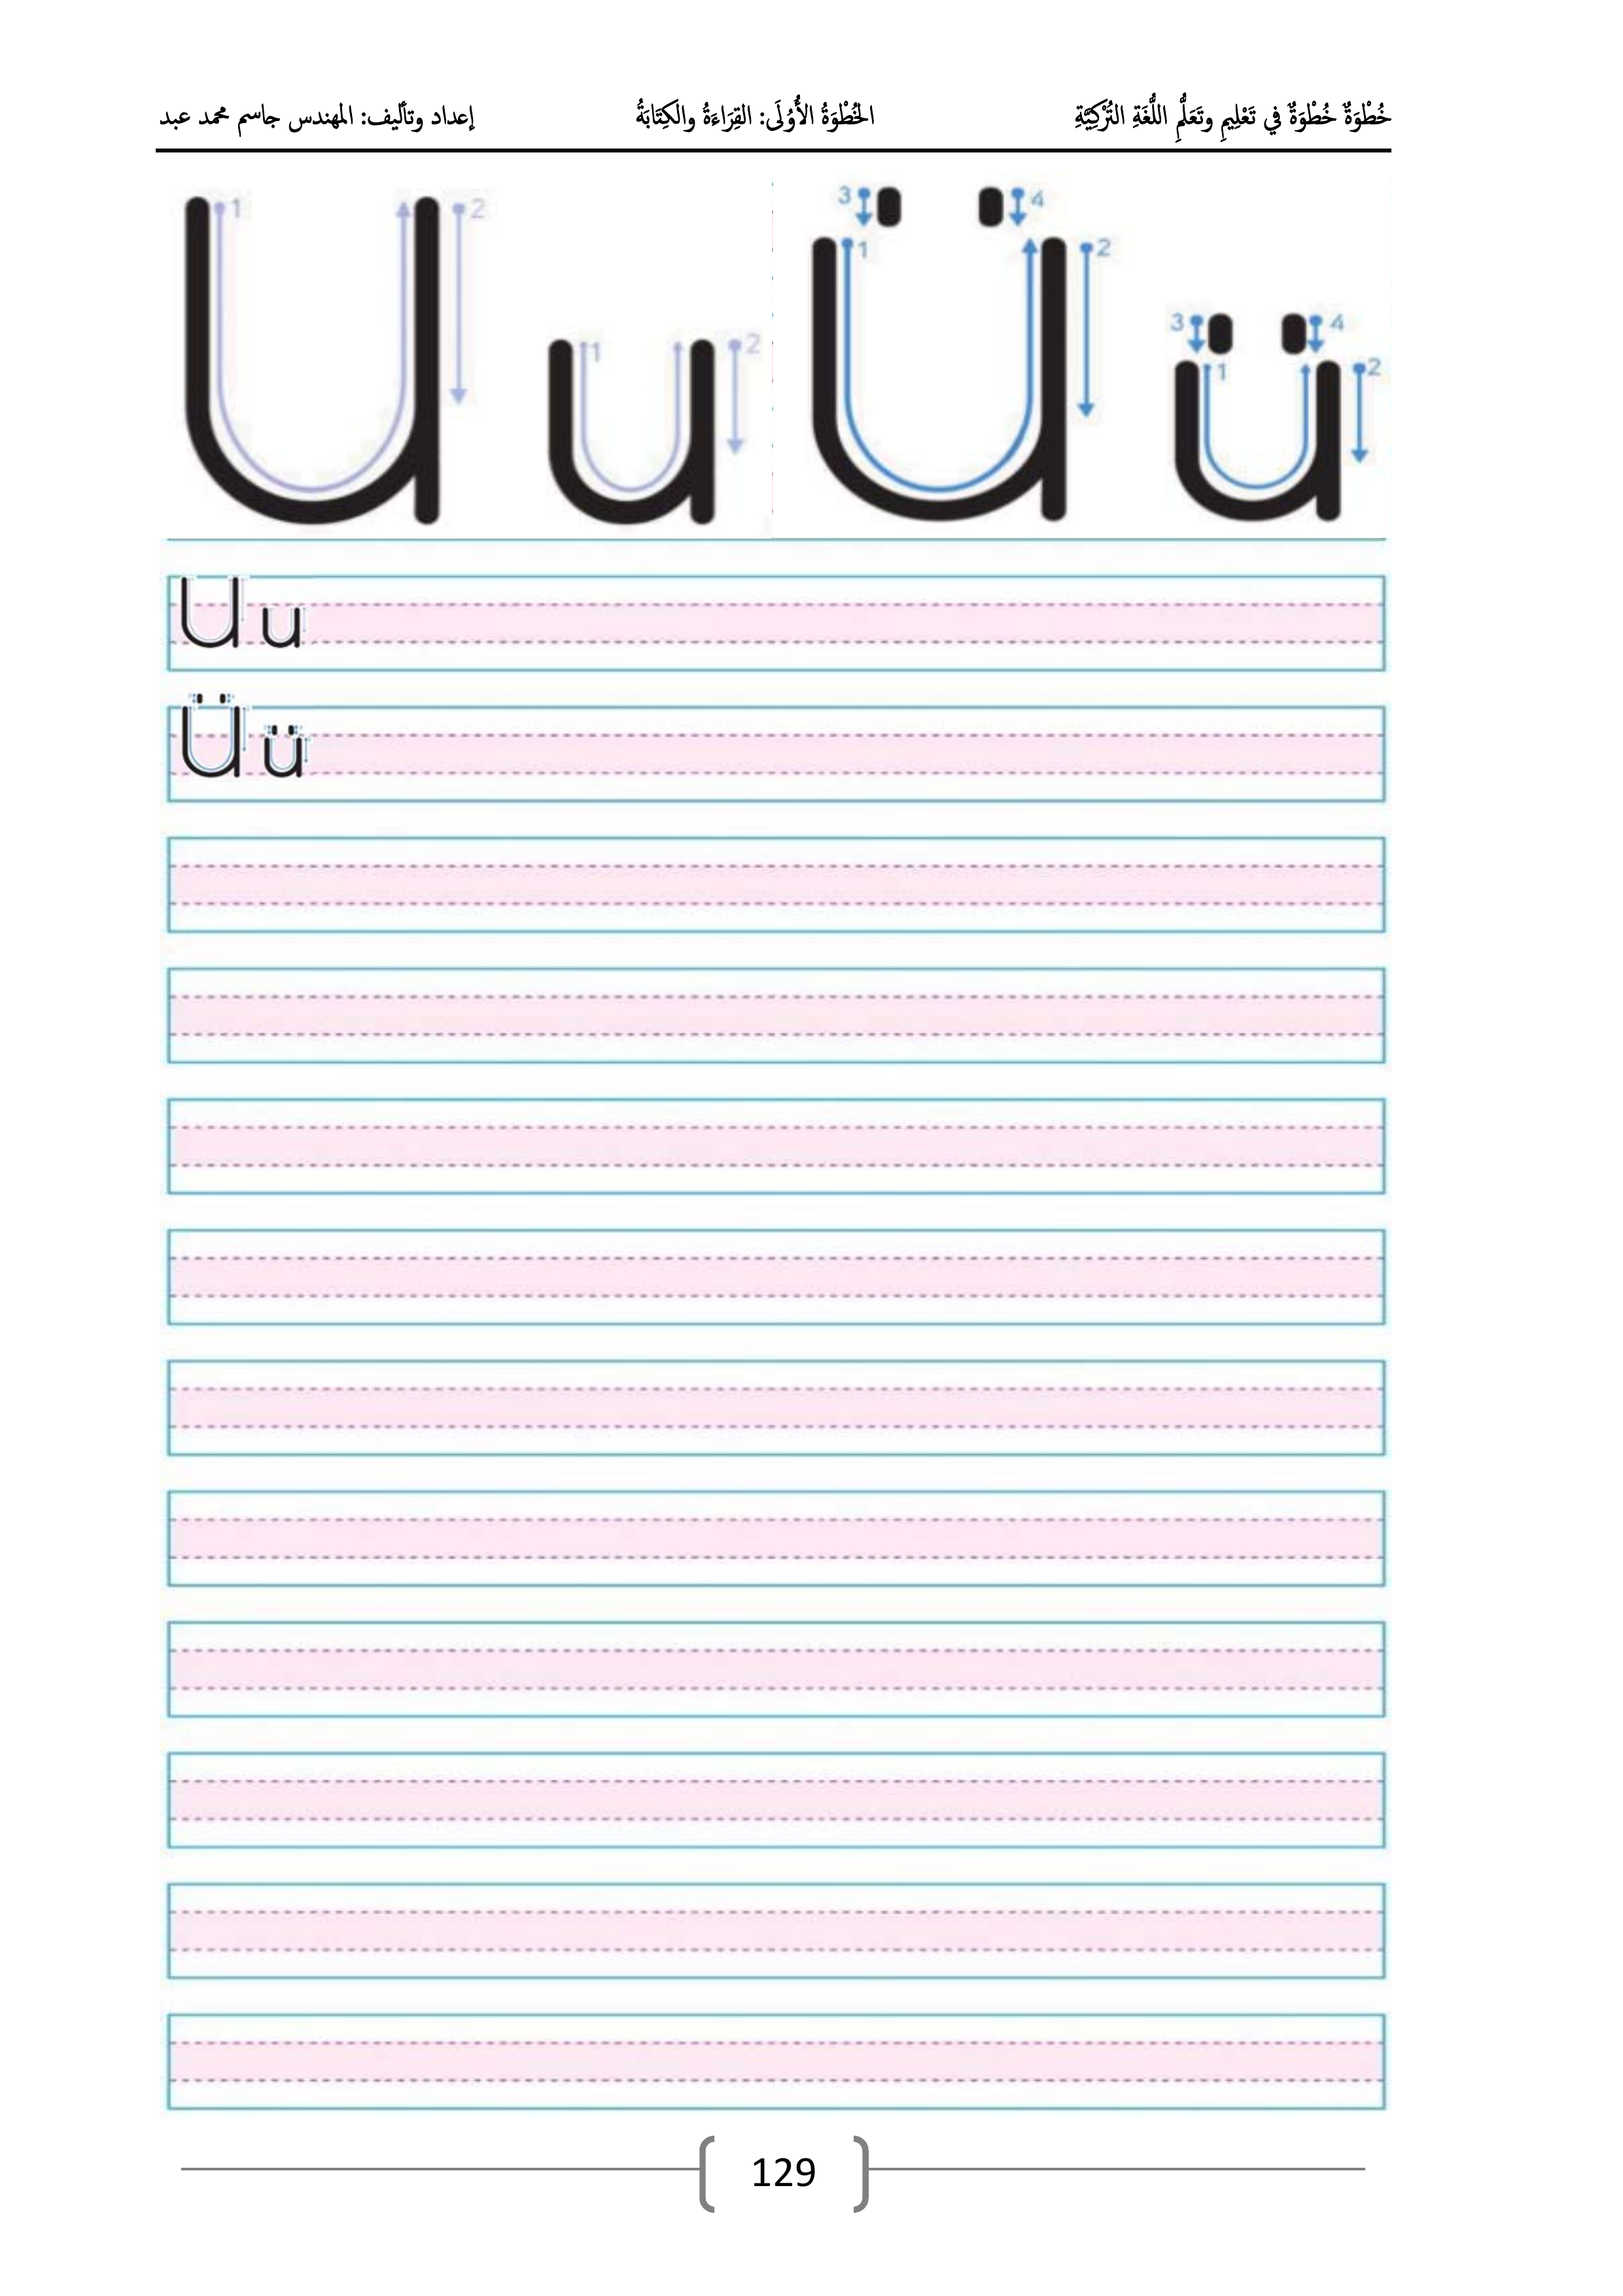 خُطْوَةٌ خُطْوَةٌ في تَعْلِيمِ وتَعَلُّمِ اللُّغَةِ التُّرْكِيَّةِ الخُطْوَةُ الأُوْلَى: القِرَاءَةُ والكِتَابَةُ إعداد وتأليف: المهندس جاسم محمد عبد
3 4
1 2 1 2
U u Ü ü
1 2 3 4 1 2
U u
Ü ü
129